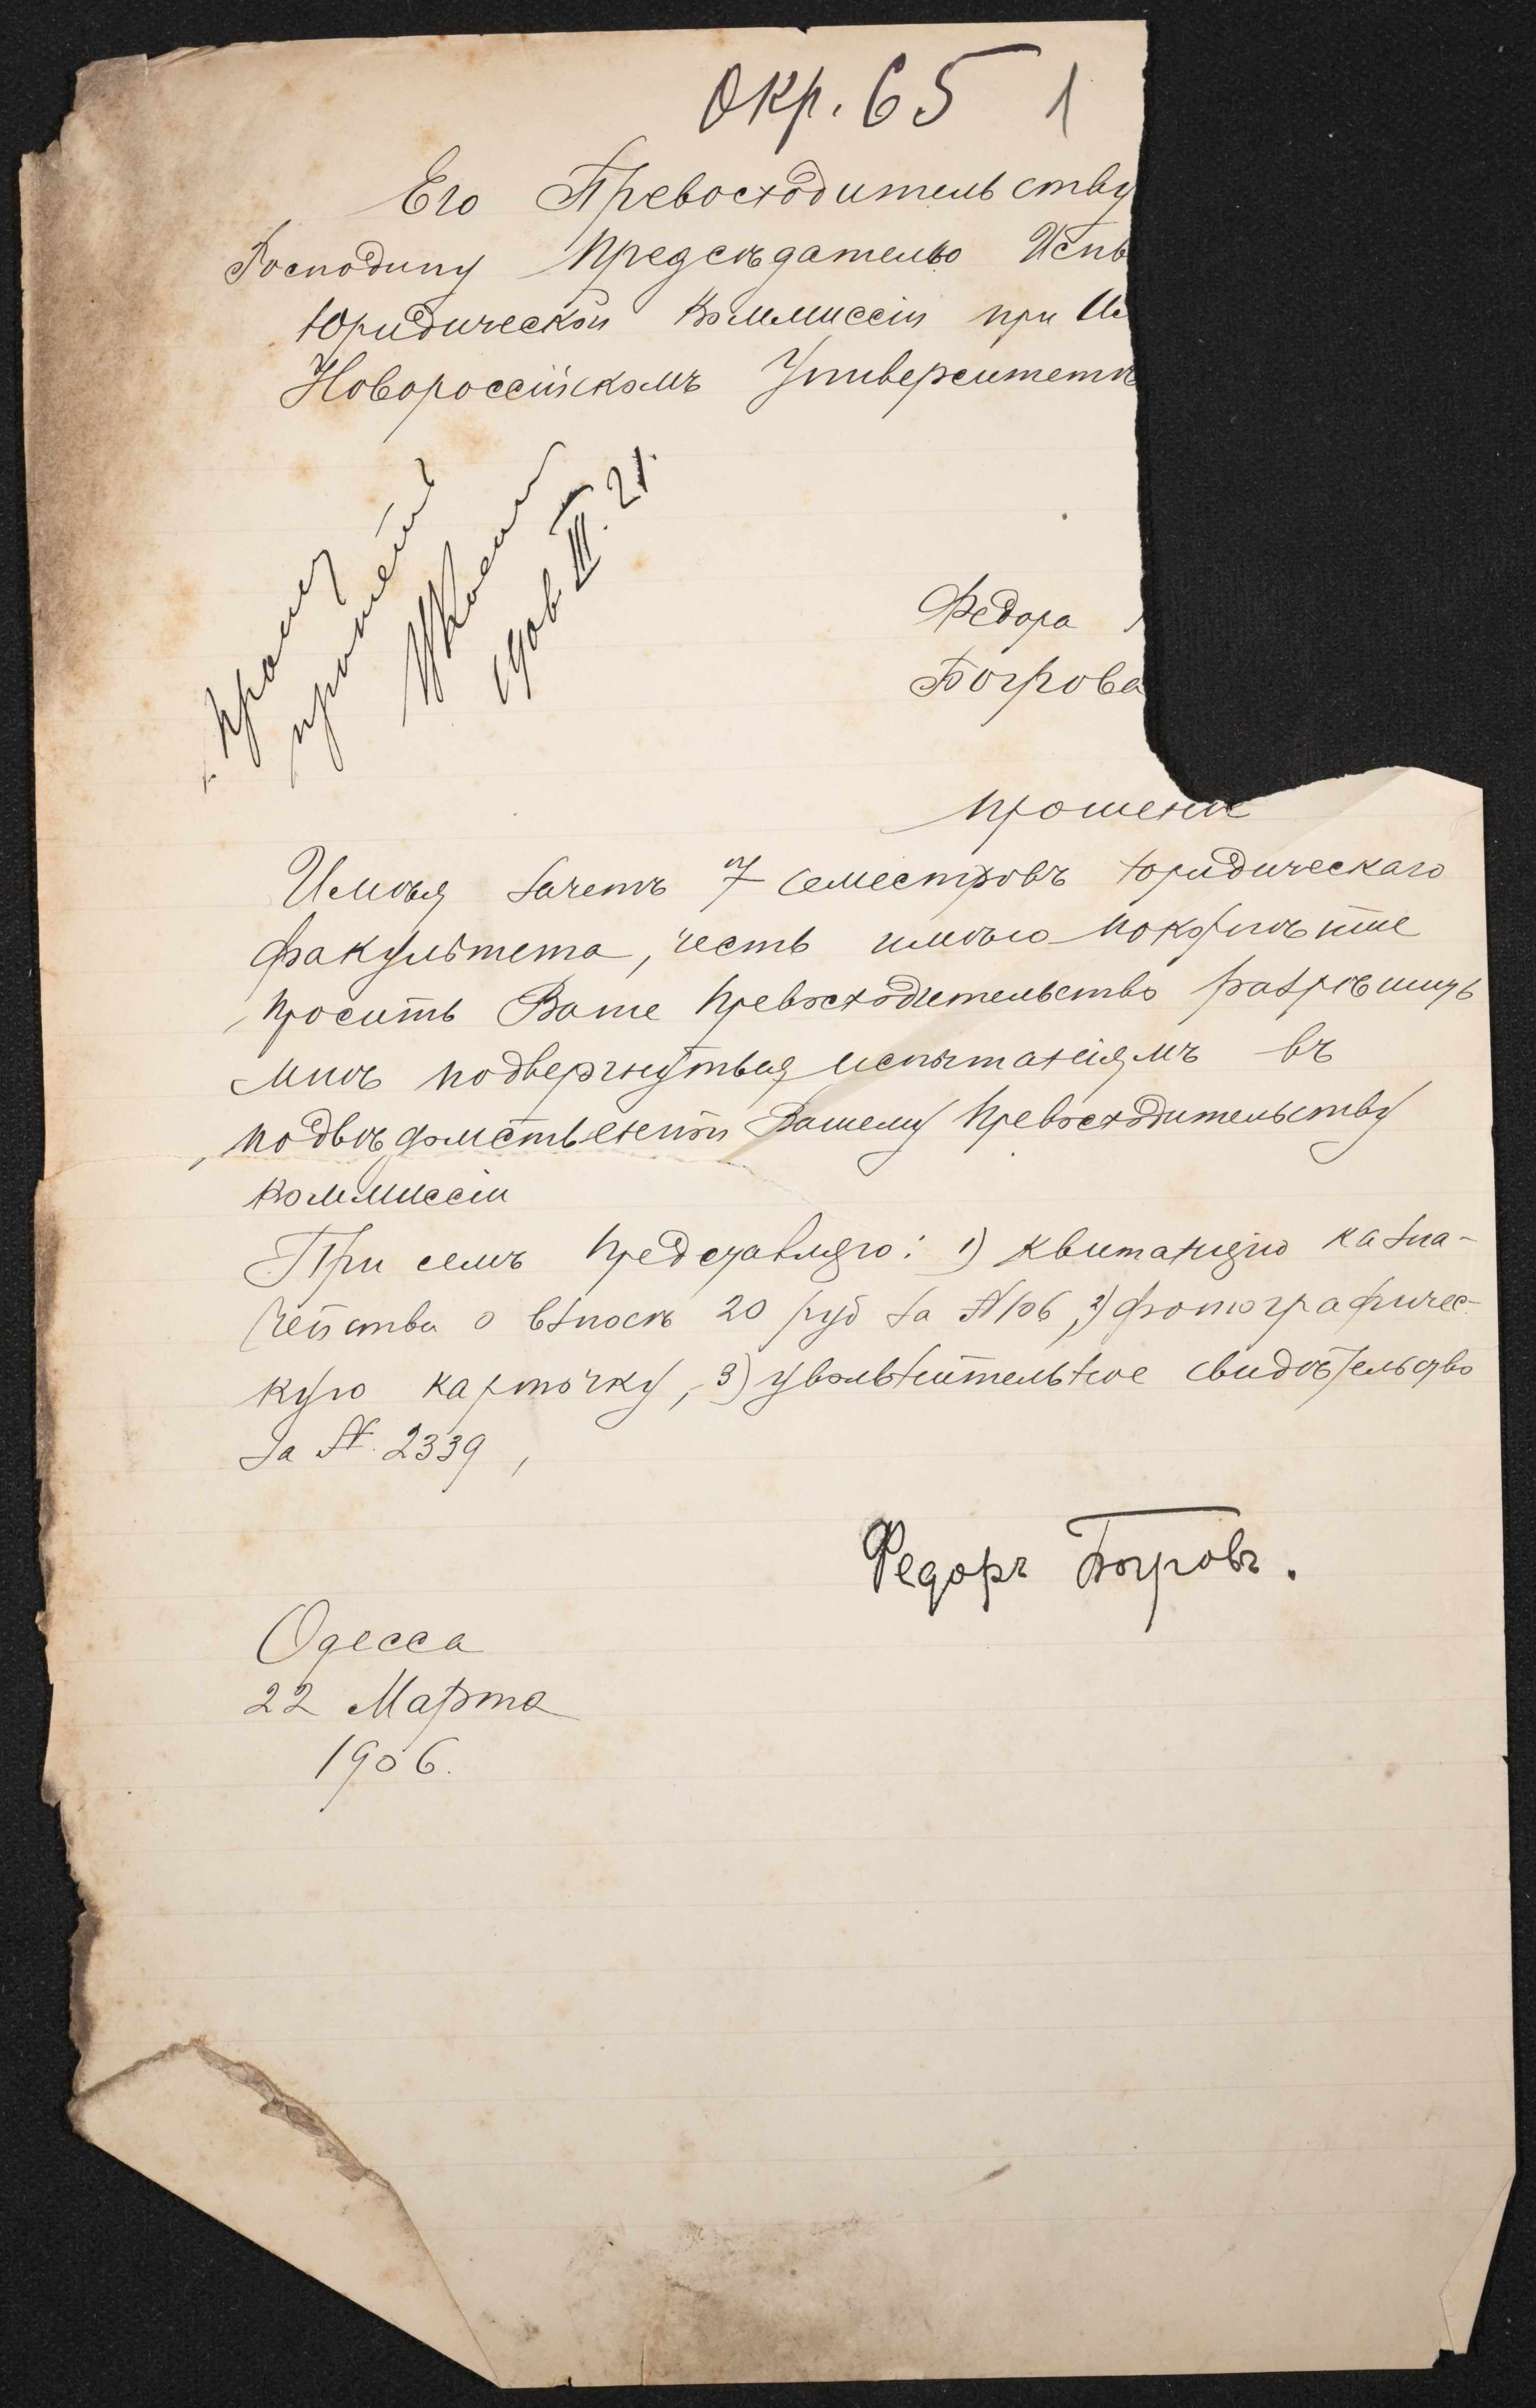 Окр. 65 1
Его Превосходительству
Господину Предсѣдателю Испы
Юридической Коммиссіи при И
Новороссійскомъ Университетѣ
1906 III. 21.
Федора
Богрова
Прошеніе
Имѣя зачетъ 7 семестровъ юридическаго
факультета, честь имѣю покорнѣйше
просить Ваше Превосходительство разрѣшить
мнѣ подвергнуться испытаніямъ въ
подвѣдомственной Вашему Превосходительству
коммиссіи
При семъ представляю: 1) квитанцію казна-
чейства о взносѣ 20 руб за №106, 2) фотографичес-
кую карточку, 3) увольнительное свидѣтельство
за №. 2339,
Федоръ Богровъ.
Одесса
22 Марта
1906.